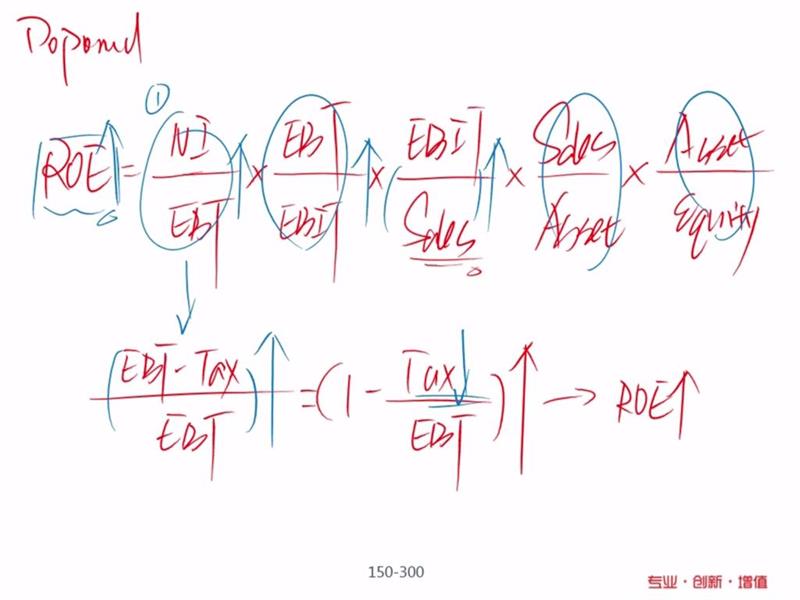 Dopomd
①
ROE↑ = NI/EBT ↑ × EBT/EBIT ↑ × (EBIT/Sales ↑ × Sales/Asset × Asset/Equity
↓
(EBT-Tax/EBT)↑ = (1 - Tax↓/EBT)↑ → ROE↑
150-300
专业·创新·增值